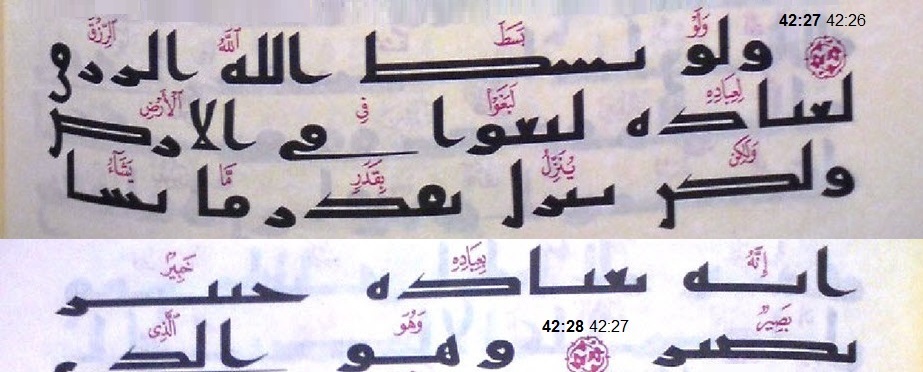 42:27 42:26
وَلَوْ بَسَطَ ٱللَّهُ ٱلرِّزْقَ
ولو بسط الله الرزق
لِعِبَادِهِ لَبَغَوْا فِي ٱلْأَرْضِ
لعباده لبغوا في الارض
وَلَٰكِن يُنَزِّلُ بِقَدَرٍ مَّا يَشَآءُ
ولكن ينزل بقدر ما يشا
إِنَّهُ بِعِبَادِهِ خَبِيرٌ
انه بعباده خبير
بَصِيرٌ 42:28 42:27 وَهُوَ ٱلَّذِى
بصير وهو الذي